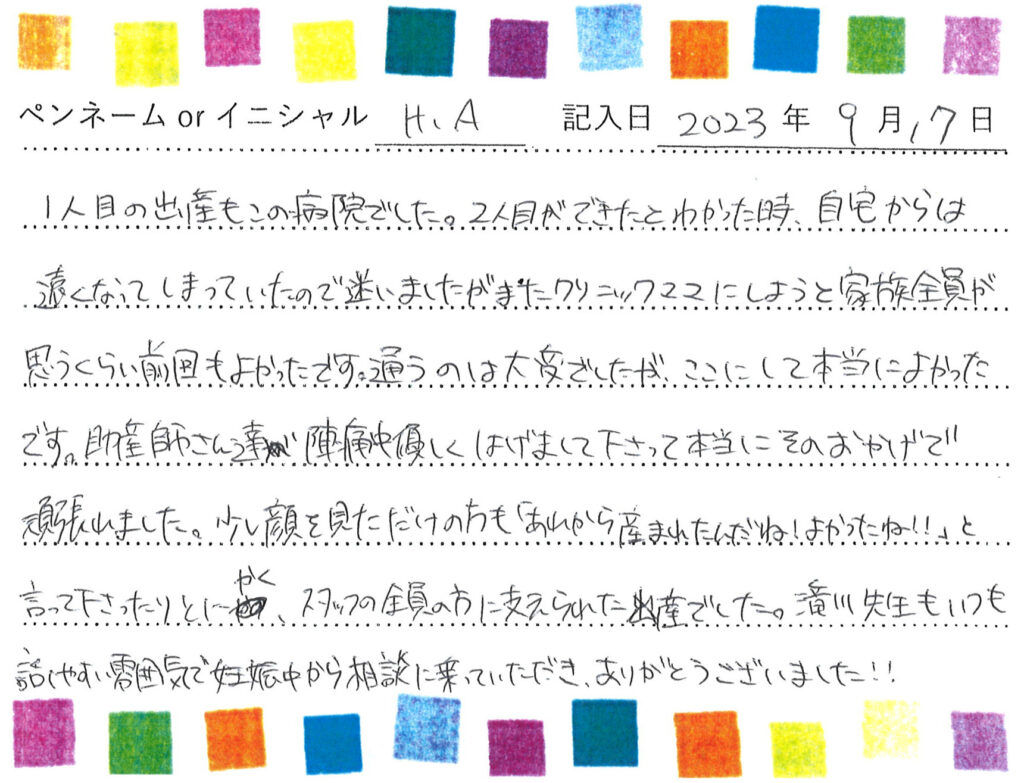 ペンネーム or イニシャル H、A 記入日 2023 年 9 月 17 日
1人目の出産もこの病院でした。2人目ができたとわかった時、自宅からは
遠くなってしまっていたので迷いましたがまたクリニックママにしようと家族全員が
思うくらい前回もよかったです。通うのは大変でしたが、ここにして本当によかった
です。助産師さん達が陣痛中優しくはげまして下さって本当にそのおかげで
頑張れました。少し顔を見ただけの方も「あれから産まれたんだね!よかったね!!」と
言って下さったりとにかく、スタッフの全員の方に支えられた出産でした。滝川先生もいつも
話しやすい雰囲気で妊娠中から相談に乗っていただき、ありがとうございました!!